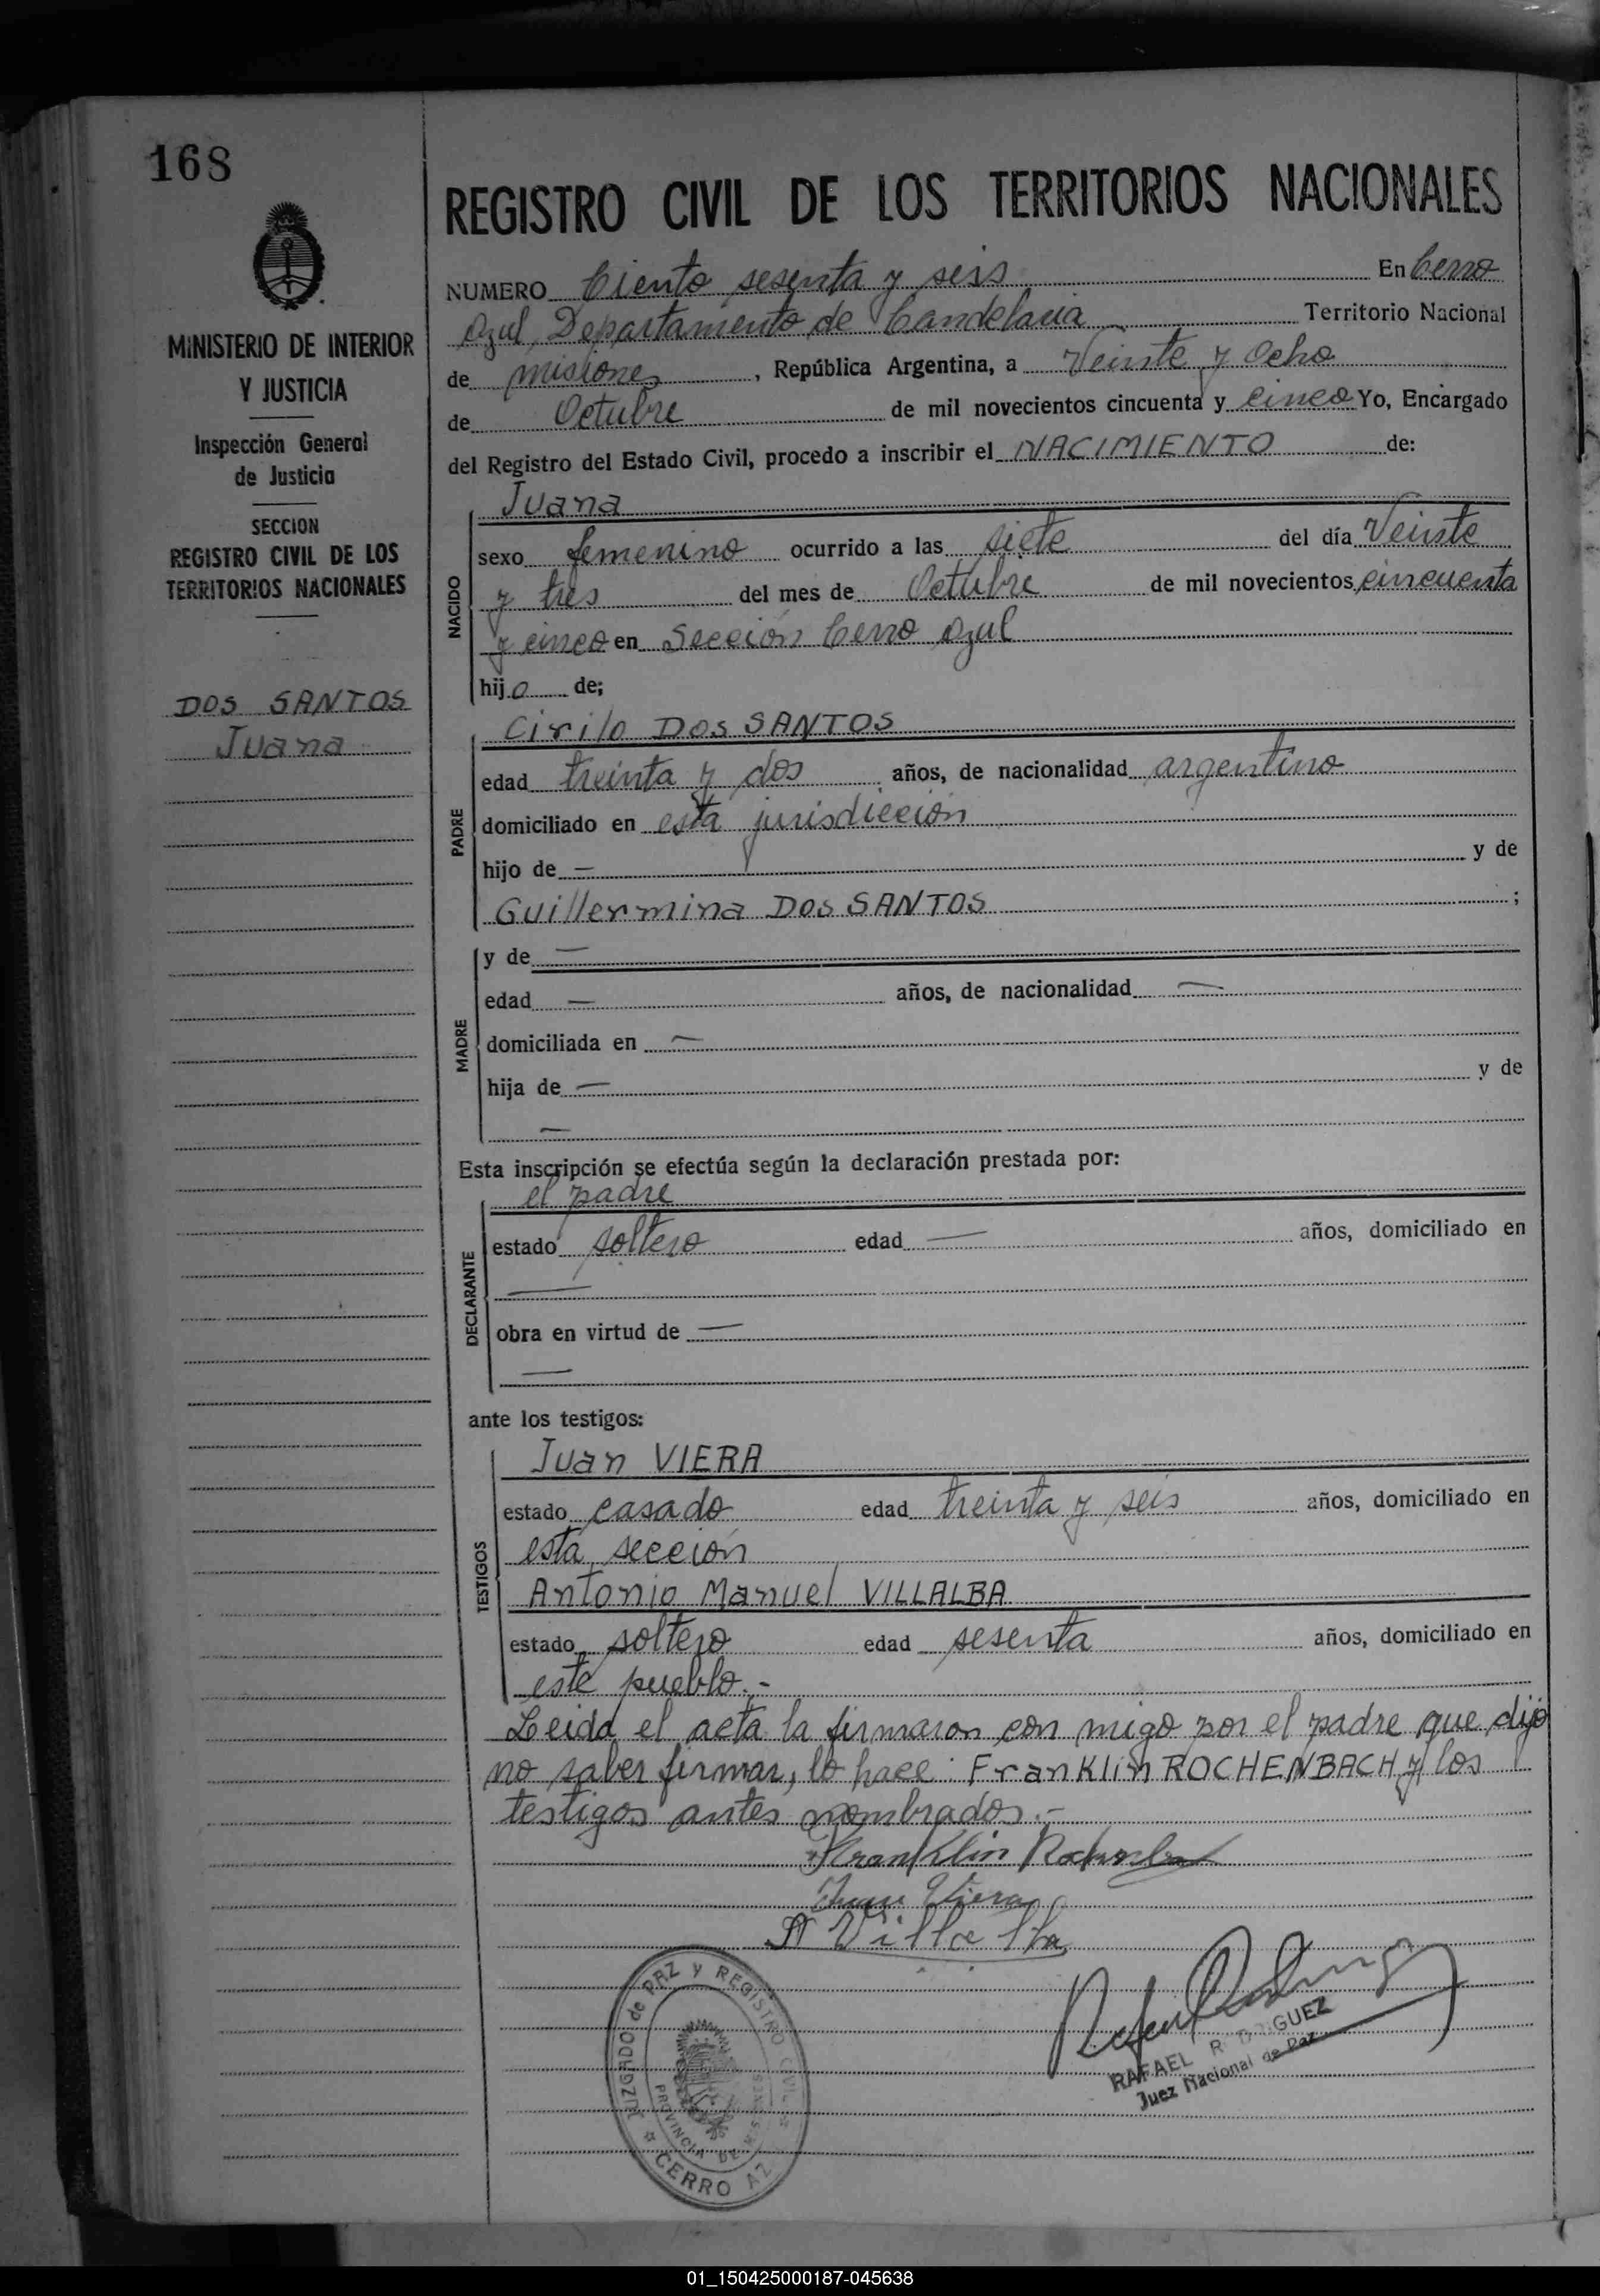 168
MINISTERIO DE INTERIOR
Y JUSTICIA
Inspección General
de Justicia
SECCION
REGISTRO CIVIL DE LOS
TERRITORIOS NACIONALES
DOS SANTOS
Juana
REGISTRO CIVIL DE LOS TERRITORIOS NACIONALES
NUMERO Ciento sesenta y seis En Cerro
Azul, Departamento de Candelaria Territorio Nacional
de misiones, República Argentina, a Veinte y Ocho
de Octubre de mil novecientos cincuenta y cinco Yo, Encargado
del Registro del Estado Civil, procedo a inscribir el NACIMIENTO de:
NACIDO
Juana
sexo femenino ocurrido a las siete del día Veinte
y tres del mes de Octubre de mil novecientos cincuenta
y cinco en Sección Cerro Azul
hij o de;
PADRE
Cirilo DOS SANTOS
edad treinta y dos años, de nacionalidad argentino
domiciliado en esta jurisdicción
hijo de — y de
Guillermina DOS SANTOS ;
MADRE
y de —
edad — años, de nacionalidad —
domiciliada en —
hija de — y de
—
Esta inscripción se efectúa según la declaración prestada por:
DECLARANTE
el padre
estado soltero edad — años, domiciliado en
—
obra en virtud de —
—
ante los testigos:
TESTIGOS
Juan VIERA
estado casado edad treinta y seis años, domiciliado en
esta sección
Antonio Manuel VILLALBA
estado soltero edad sesenta años, domiciliado en
este pueblo.-
Leida el acta la firmaron con migo por el padre que dijo
no saber firmar, lo hace: Franklin ROCHENBACH y los
testigos antes nombrados.-
Franklin
Juan Viera
A Villalba
JUZGADO de PAZ y REGISTRO CIVIL
PROVINCIA DE MISIONES
CERRO AZ
RAFAEL R. DRIGUEZ
Juez Nacional de Paz
01_150425000187-045638